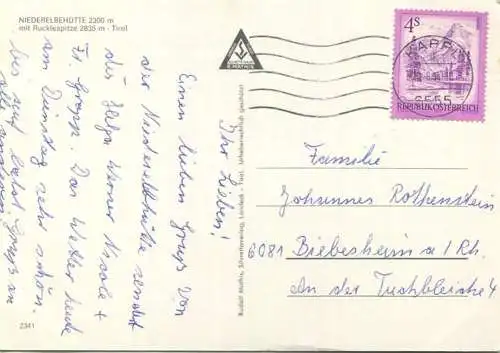 NIEDERELBEHÜTTE 2300 m
mit Rucklespitze 2835 m - Tirol
Ihr Lieben!
Einen lieben Gruß von
der Niederelbhütte sendet
die Helga Werner Nicole +
Fr. Grapp. Das Wetter heute
am Dienstag sehr schön.
bis auf bald. Gruß an
alle anderen.
2341
Rudolf Mathis, Silvrettaverlag, Landeck - Tirol. Urheberrechtlich geschützt
R. MATHIS
4 S
REPUBLIK ÖSTERREICH
KAPPL
6555
Familie
Johannes Rothenstein
6081 Biebesheim a/Rh.
An der Tuchbleiche 4